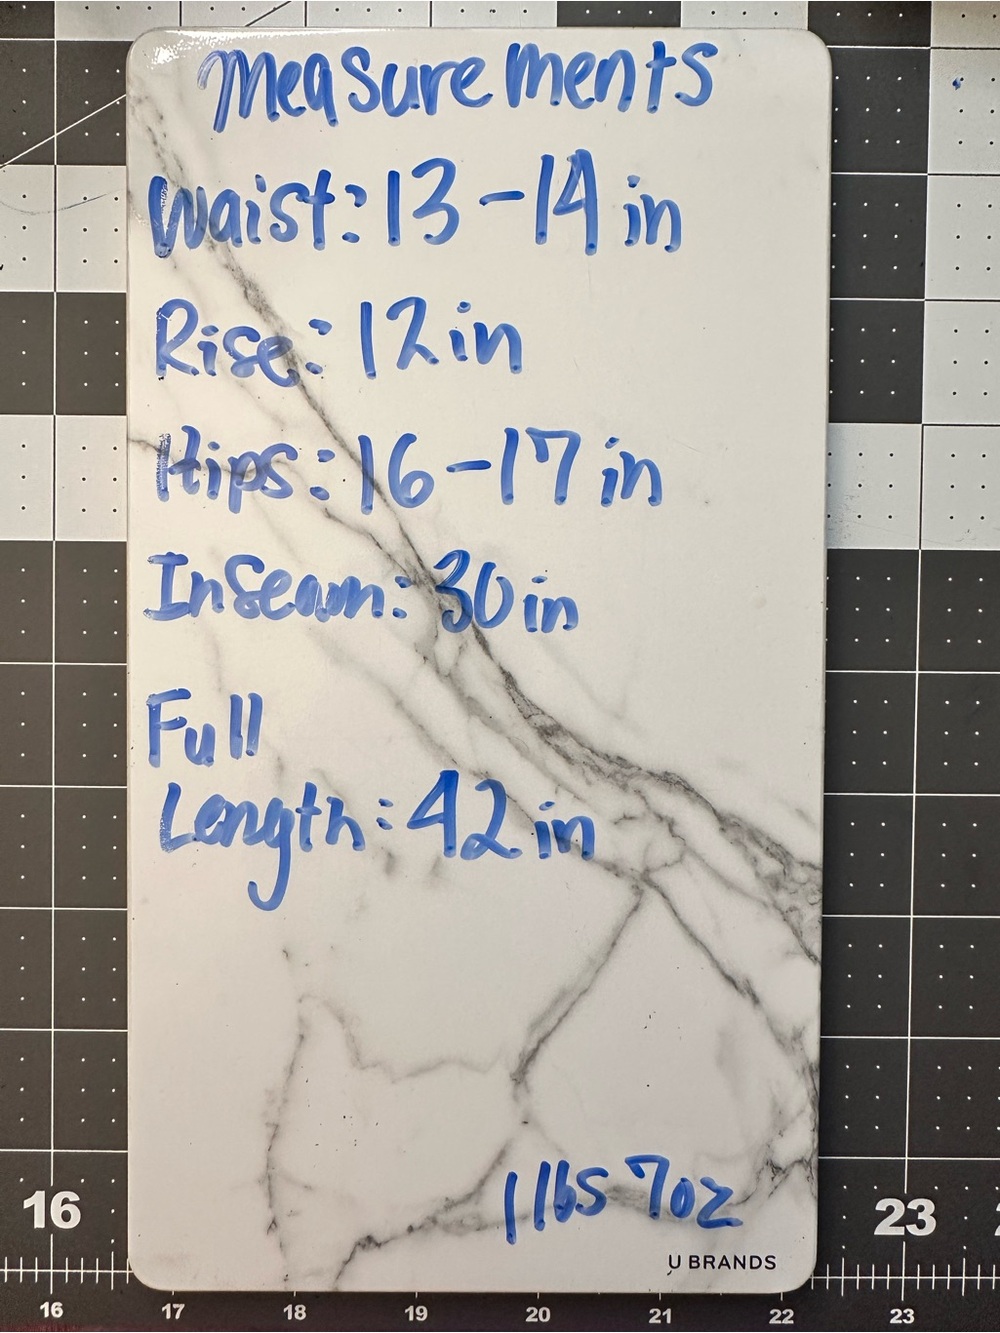 Measurements
Waist: 13-14 in
Rise: 12 in
Hips: 16-17 in
Inseam: 30 in
Full
Length: 42 in
1 lbs 7oz
U BRANDS
16 23
16 17 18 19 20 21 22 23